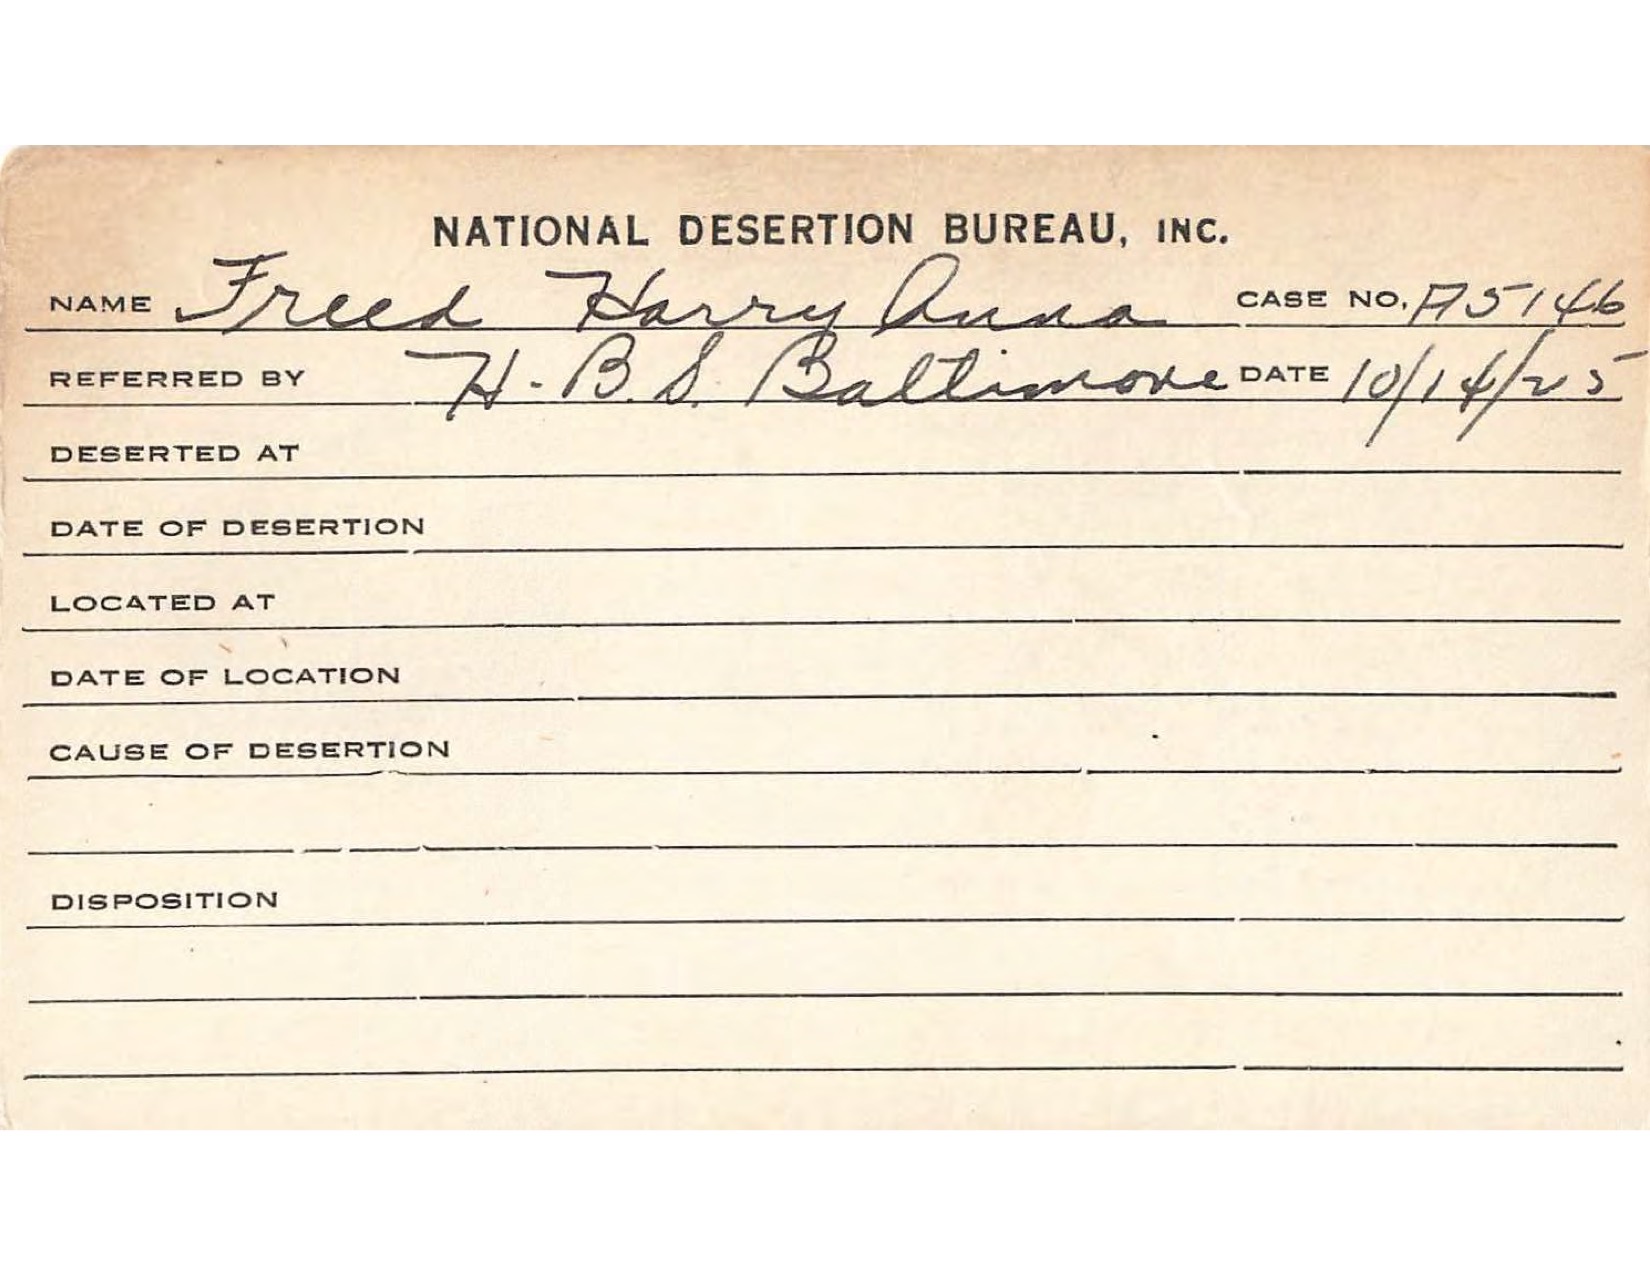 NATIONAL DESERTION BUREAU, INC.
NAME Freed Harry Anna CASE NO. A5146
REFERRED BY H. B. S. Baltimore DATE 10/14/25
DESERTED AT
DATE OF DESERTION
LOCATED AT
DATE OF LOCATION
CAUSE OF DESERTION
DISPOSITION